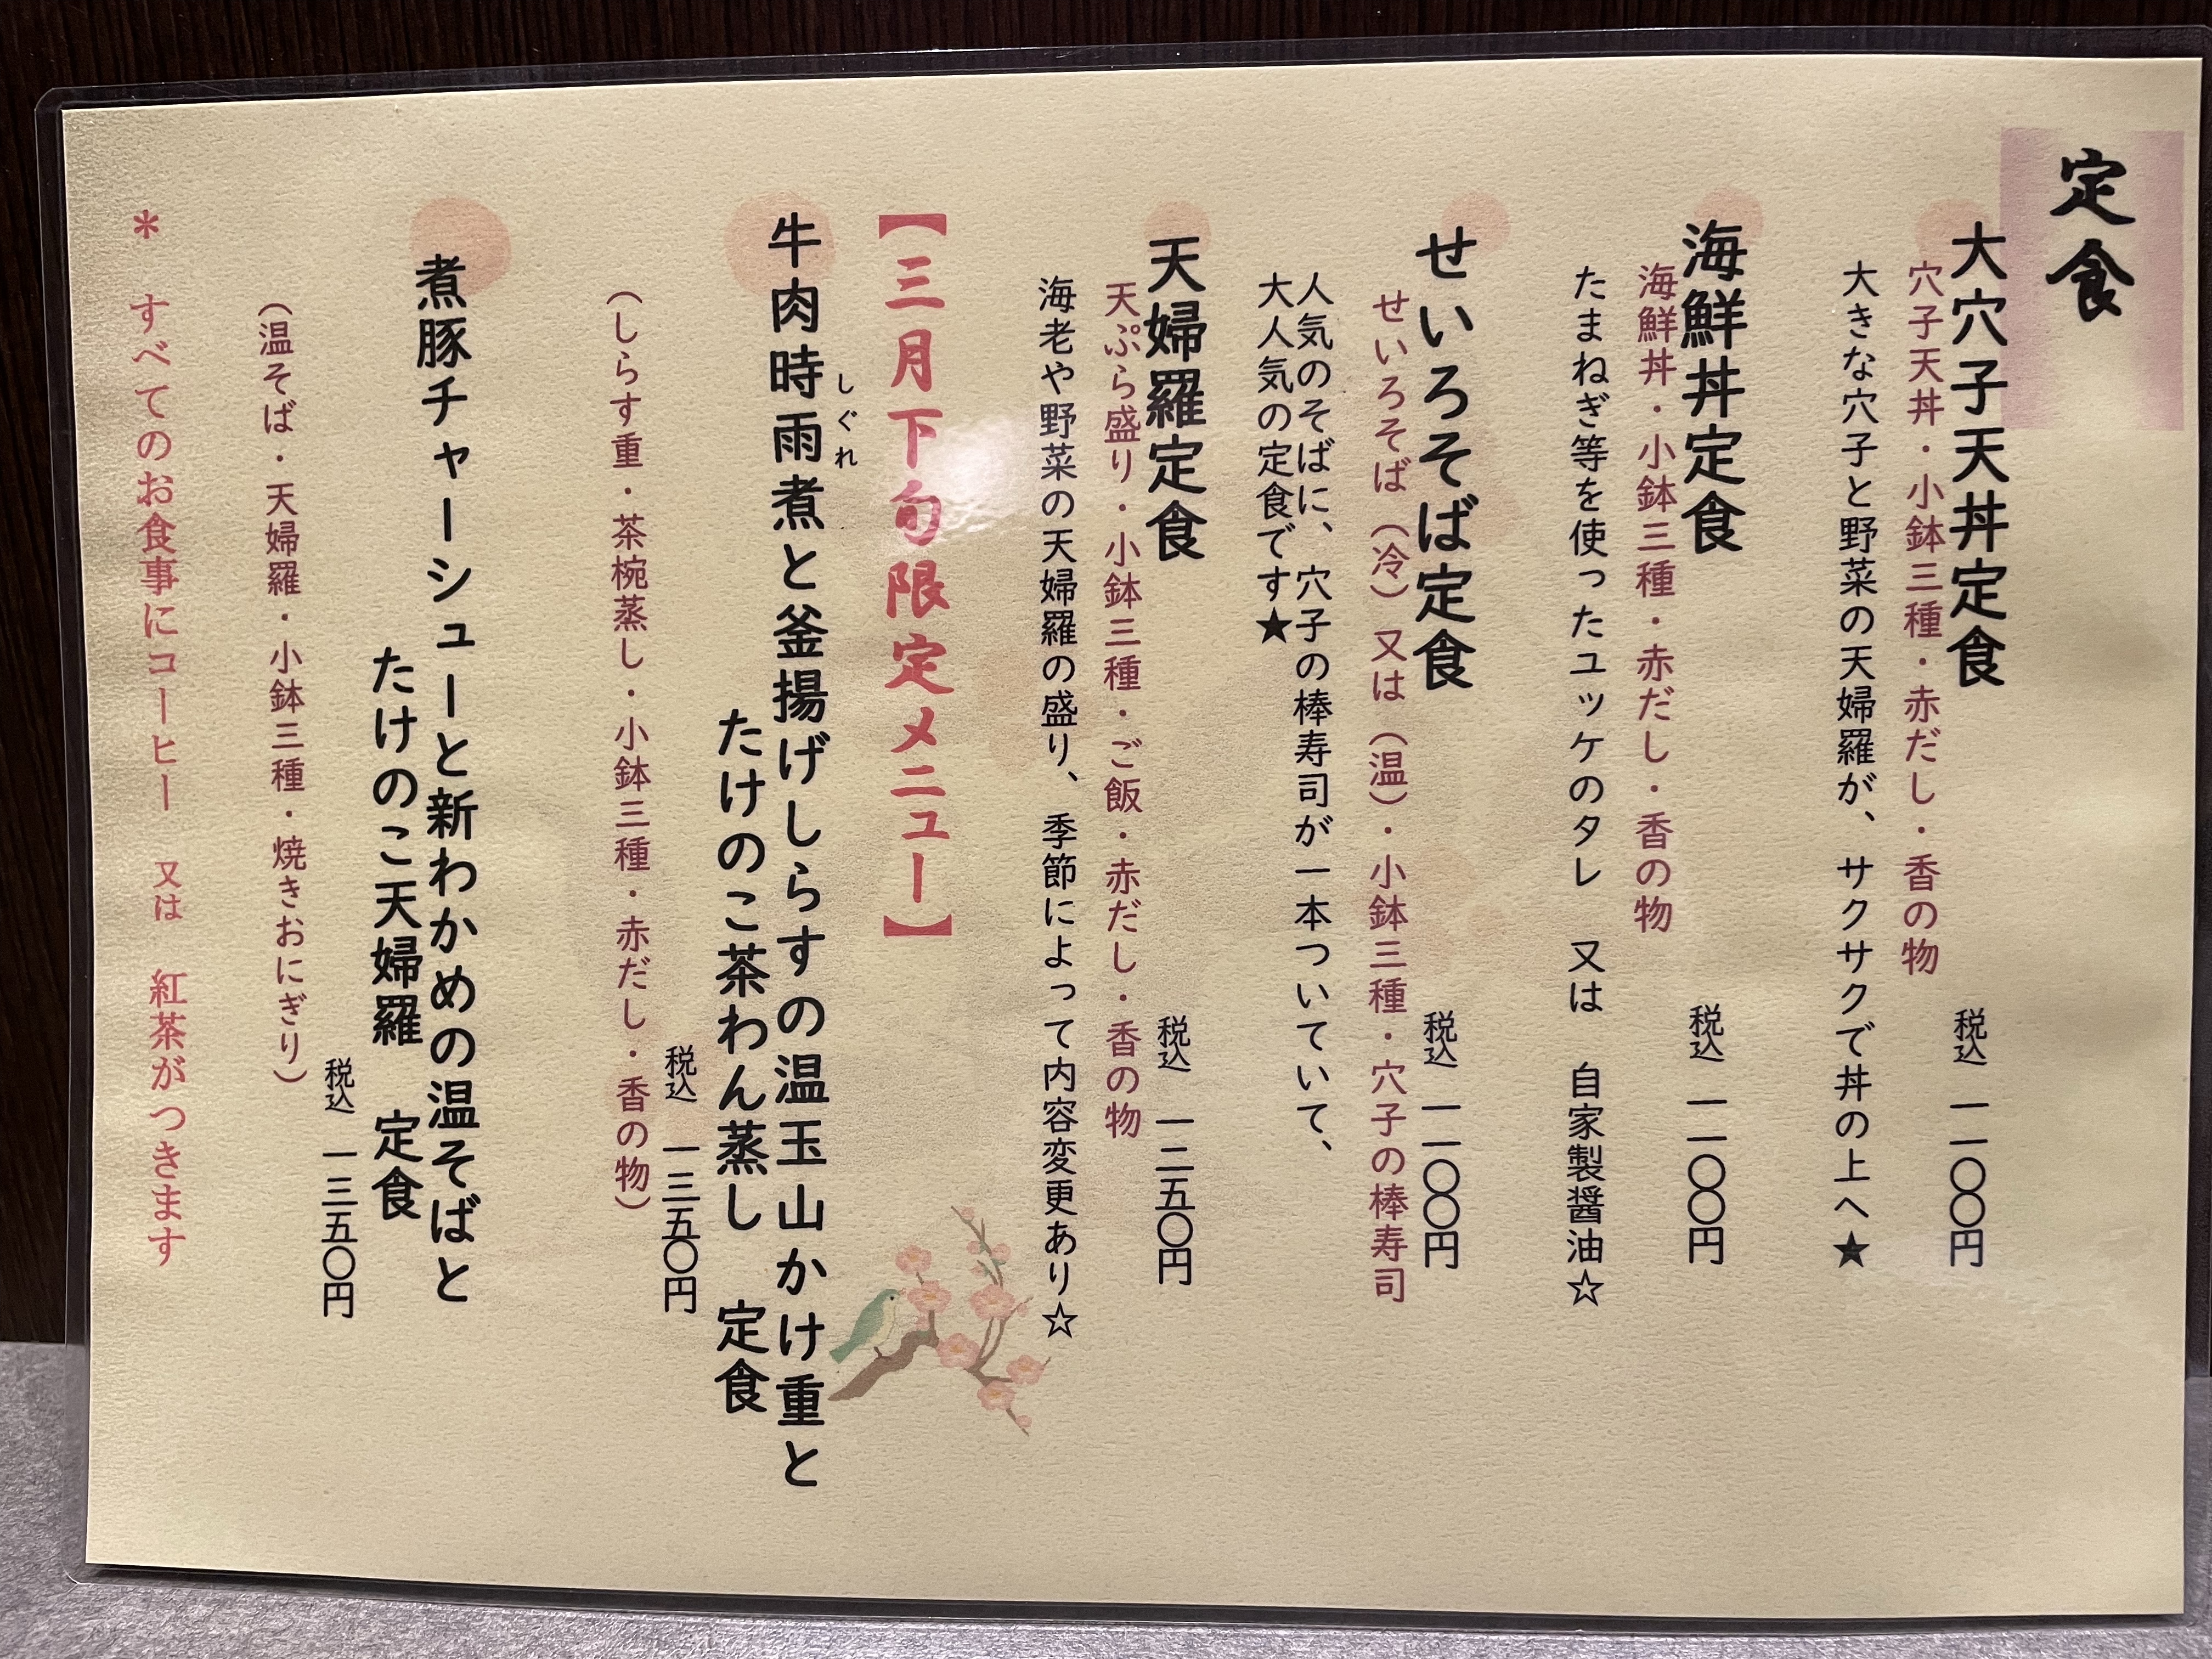 定食
大穴子天丼定食
税込 一一〇〇円
穴子天丼・小鉢三種・赤だし・香の物
大きな穴子と野菜の天婦羅が、サクサクで丼の上へ★
海鮮丼定食
税込 一一〇〇円
海鮮丼・小鉢三種・赤だし・香の物
たまねぎ等を使ったユッケのタレ 又は 自家製醤油☆
せいろそば定食
税込 一一〇〇円
せいろそば（冷）又は（温）・小鉢三種・穴子の棒寿司
人気のそばに、穴子の棒寿司が一本ついていて、
大人気の定食です★
天婦羅定食
税込 一二五〇円
天ぷら盛り・小鉢三種・ご飯・赤だし・香の物
海老や野菜の天婦羅の盛り、季節によって内容変更あり☆
【三月下旬限定メニュー】
しぐれ
牛肉時雨煮と釜揚げしらすの温玉山かけ重と
たけのこ茶わん蒸し 定食
税込 一三五〇円
（しらす重・茶椀蒸し・小鉢三種・赤だし・香の物）
煮豚チャーシューと新わかめの温そばと
たけのこ天婦羅 定食
税込 一三五〇円
（温そば・天婦羅・小鉢三種・焼きおにぎり）
＊ すべてのお食事にコーヒー 又は 紅茶がつきます